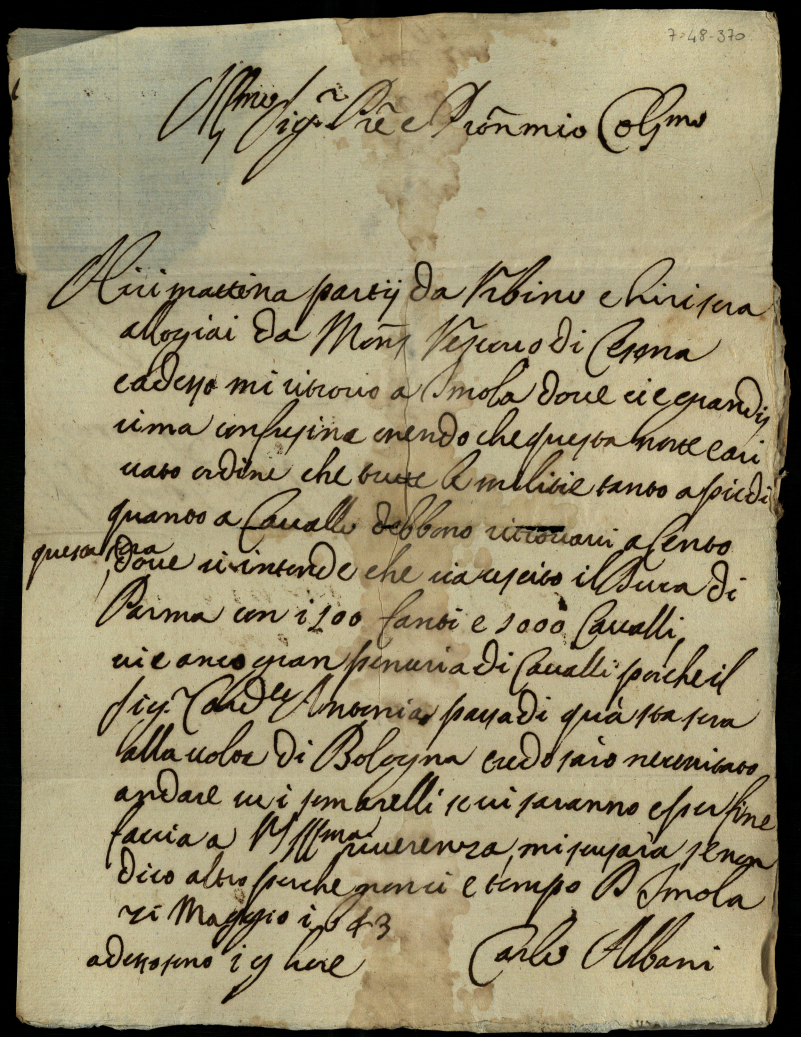 7-48-370
Illmo Sig.r Prē e Prōn mio Colsmo
Hiri mattina partij da Urbino e hiri sera
allogiai da Mons Vescovo di Cesena
e adesso mi ritrovo a Imola dove ci e grandis
sima confusine essendo che questa notte e ari
vato ordine che tutte le militie tanto a piedi
quanto a Cavallo debbono ritrovarsi a Cento
questa sera
dove si intende che sia uscito il Duca di
Parma con i500 fanti e 1000 Cavalli,
vi e anco gran penuria di Cavalli perche il
Sig.r Cardle Antonio passa di quà sta sera
alla volta di Bologna credo sarò necessitato
andare con i somarelli se vi saranno e per fine
faccio a VS Illma riverenza, mi scusarà se non
dico altro perche non ci e tempo D Imola
21 Maggio i643
adesso sono i9 hore Carlo Albani